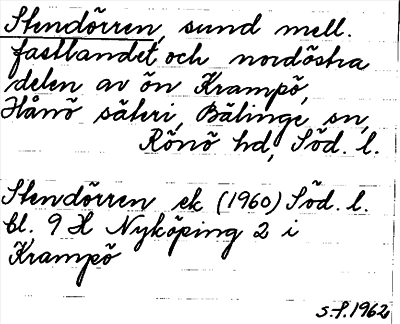 Stendörren, sund mell.
fastlandet och nordöstra
delen av ön Krampö,
Hånö säteri, Bälinge sn,
Rönö hd, Söd. l.
Stendörren ek (1960) Söd. l.
bl. 9 H Nyköping 2 i
Krampö
S.F. 1962